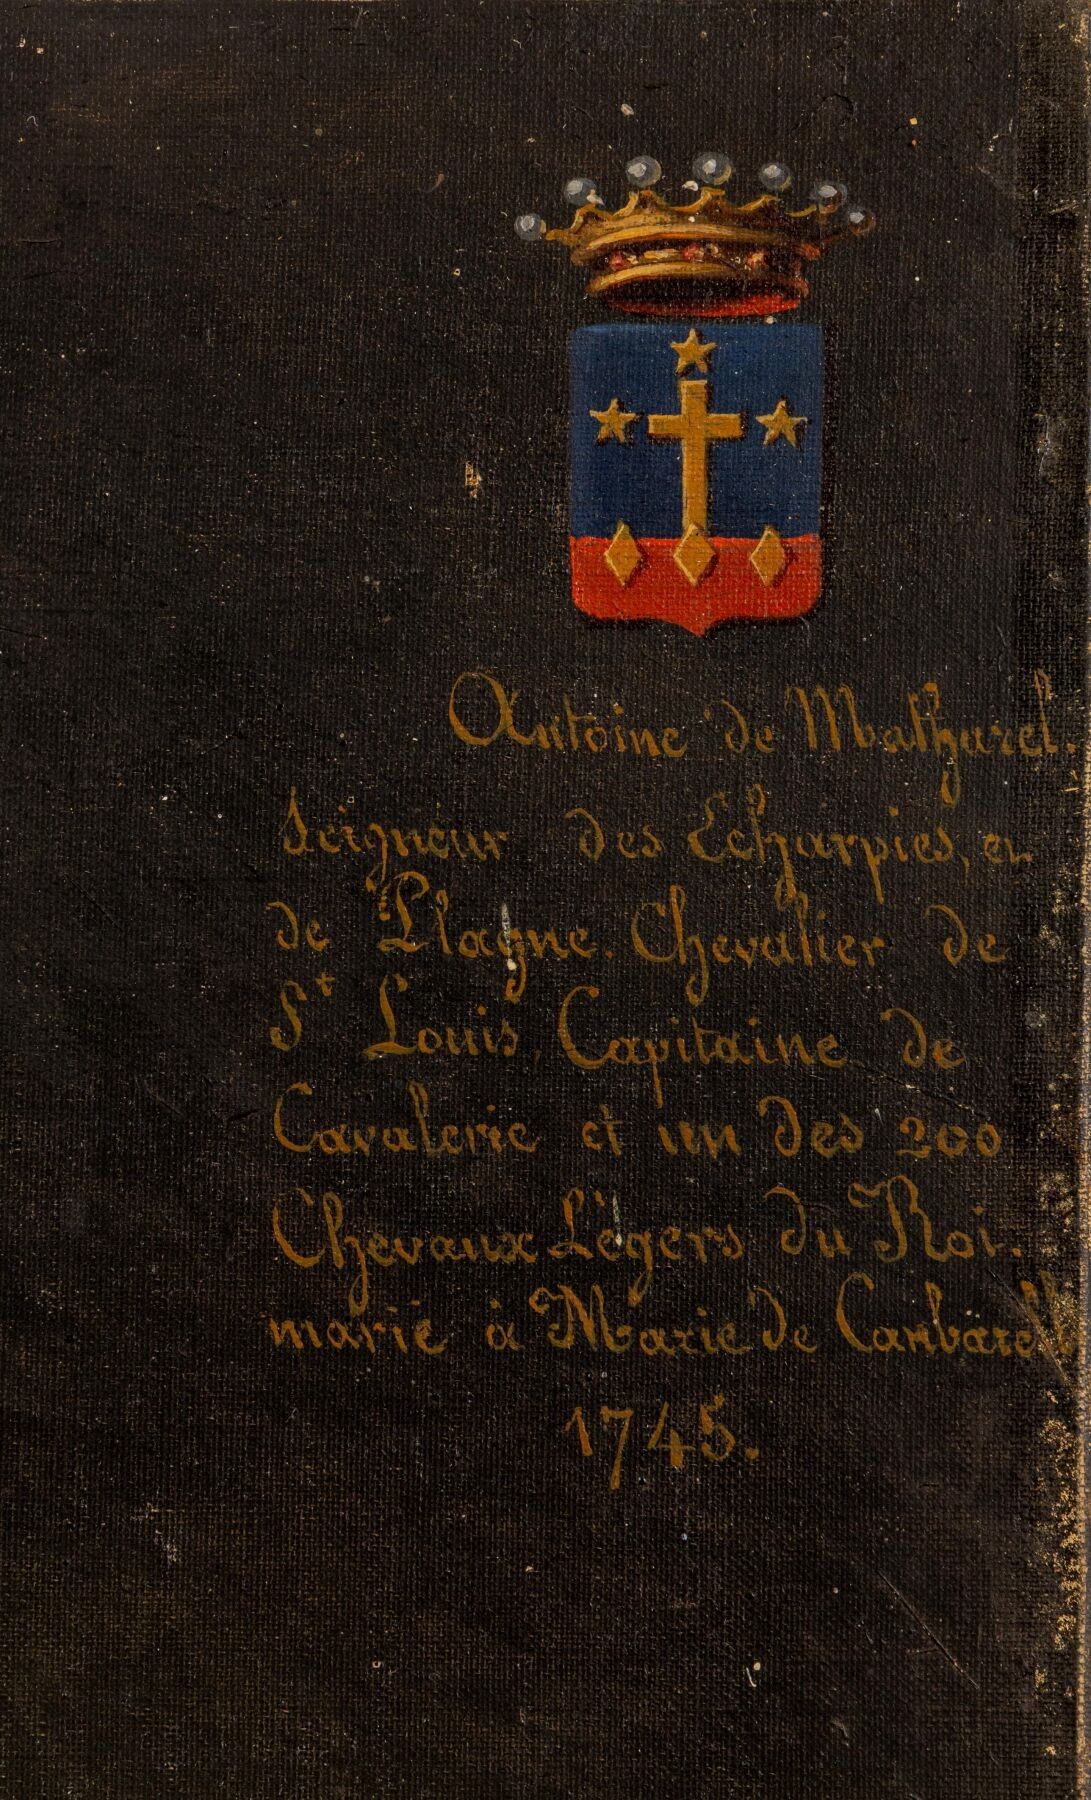 Antoine de Mathurel.
Seigneur des Echarpies, et
de Plagne. Chevalier de
St Louis, Capitaine de
Cavalerie et un des 200
Chevaux Légers du Roi.
marié à Marie de
1745.